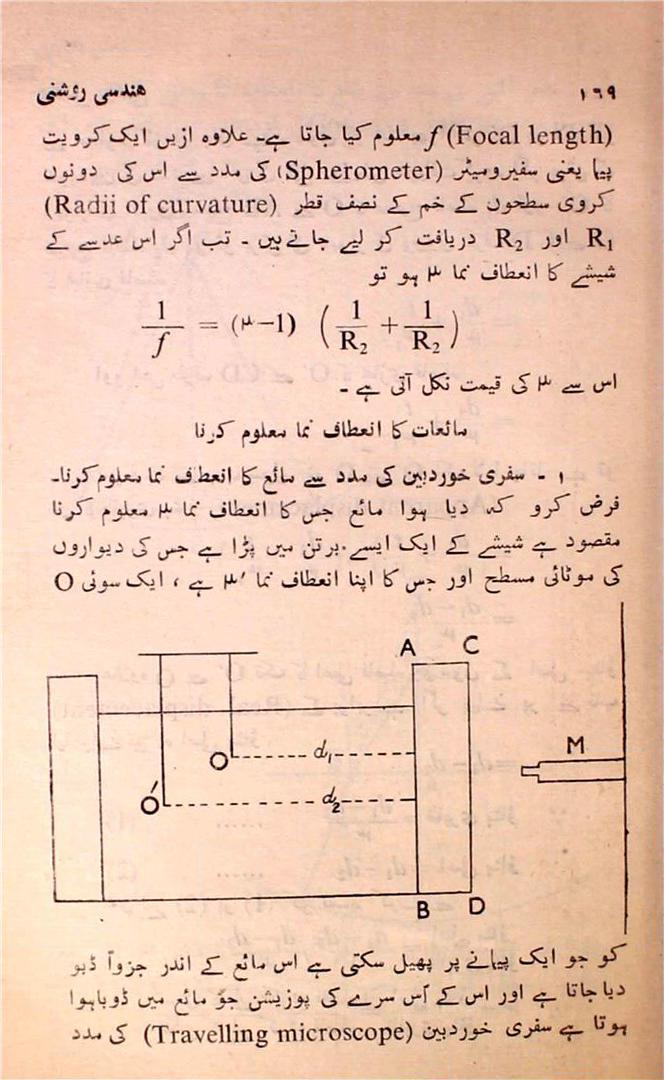 ۱۶۹ هندسی روشنی
(Focal length) f معلوم کیا جاتا ہے۔ علاوہ ازیں ایک کرویت
پیما یعنی سفیرومیٹر (Spherometer) کی مدد سے اس کی دونوں
کروی سطحوں کے خم کے نصف قطر (Radii of curvature)
R₁ اور R₂ دریافت کر لیے جاتے ہیں ۔ تب اگر اس عدسے کے
شیشے کا انعطاف نما μ ہو تو
1/f = (μ−1) (1/R₂ + 1/R₂)
اس سے μ کی قیمت نکل آتی ہے ۔
مائعات کا انعطاف نما معلوم کرنا
۱ ۔ سفری خوردبین کی مدد سے مائع کا انعطاف نما معلوم کرنا۔
فرض کرو کہ دیا ہوا مائع جس کا انعطاف نما μ معلوم کرنا
مقصود ہے شیشے کے ایک ایسے برتن میں پڑا ہے جس کی دیواروں
کی موٹائی مسطح اور جس کا اپنا انعطاف نما μ′ ہے ، ایک سوئی O
A C
M
O d₁
O′ d₂
B D
کو جو ایک پیمانے پر پھیل سکتی ہے اس مائع کے اندر جزواً ڈبو
دیا جاتا ہے اور اس کے اُس سرے کی پوزیشن جو مائع میں ڈوبا ہوا
ہوتا ہے سفری خوردبین (Travelling microscope) کی مدد